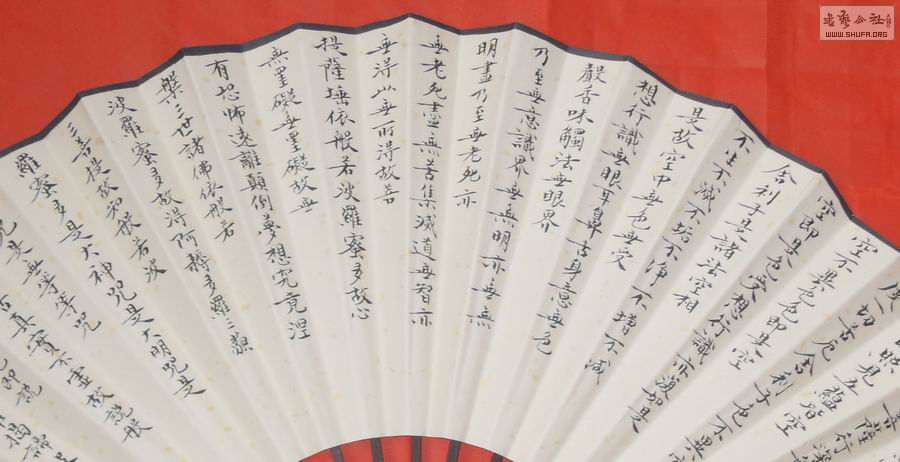 書藝公社
WWW.SHUFA.ORG
菩薩行深
照見五蘊皆空
度一切苦厄舍利子色不異
空不異色色即是空
空即是色受想行識亦復如是
舍利子是諸法空相
不生不滅不垢不淨不增不減
是故空中無色無受
想行識無眼耳鼻舌身意無色
聲香味觸法無眼界
乃至無意識界無無明亦無無
明盡乃至無老死亦
無老死盡無苦集滅道無智亦
無得以無所得故菩
提薩埵依般若波羅蜜多故心
無罣礙無罣礙故無
有恐怖遠離顛倒夢想究竟涅
槃三世諸佛依般若
波羅蜜多故得阿耨多羅三藐
三菩提故知般若波
羅蜜多是大神咒是大明咒是
咒是無等等咒
苦真實不虛故說般
咒即說
揭諦